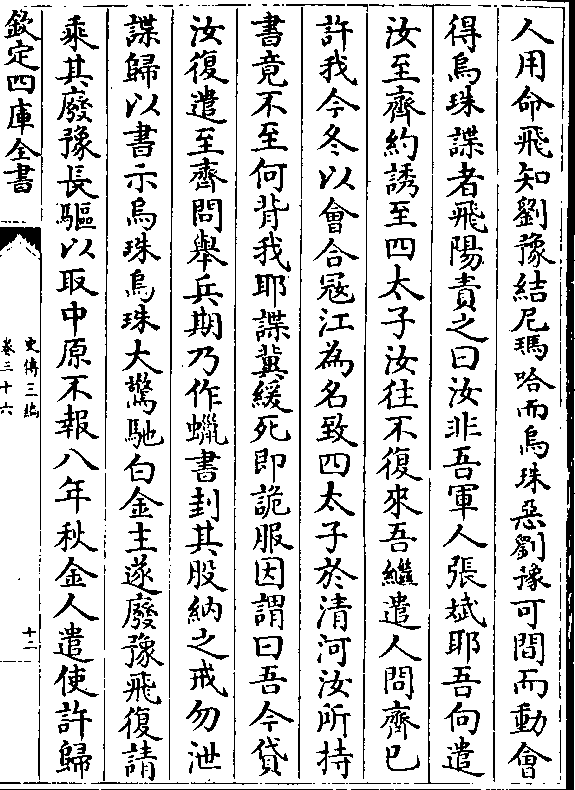 人用命飛知劉豫結尼瑪哈而烏珠惡劉豫可間而動會
得烏珠諜者飛陽責之曰汝非吾軍人張斌耶吾向遣
汝至齊約誘至四太子汝往不復來吾繼遣人問齊已
許我今冬以會合宼江為名致四太子於清河汝所持
書竟不至何背我耶諜冀緩死即詭服因謂曰吾今貸
汝復遣至齊問舉兵期乃作蠟書封其股納之戒勿泄
諜歸以書示烏珠烏珠大驚馳白金主遂廢豫飛復請
乘其廢豫長驅以取中原不報八年秋金人遣使許歸
欽定四庫全書
史傳三編
卷三十六
十二